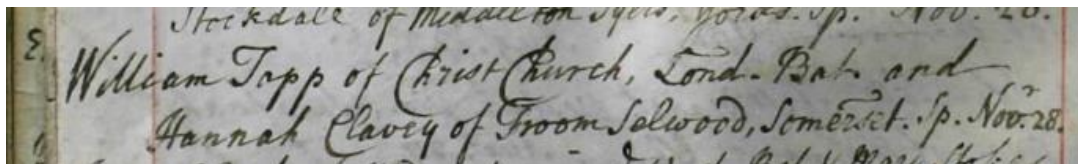 Stockdale of Middleton Tyers, Yorks. Sp. Nov. 28.
E.
William Tapp of Christ Church, Lond. Bat. and
Hannah Clavey of Froom Selwood, Somerset. Sp. Novr. 28.